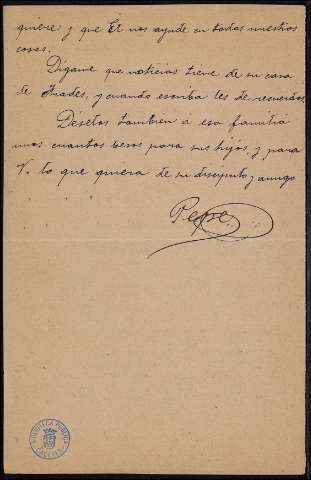 quiere y que Él nos ayude en todas nuestras
cosas.
Dígame que noticias tiene de su casa
de Frades, y cuando escriba les da recuerdos.
Déselos tambien á esa familia
unos cuantos besos para sus hijos, y para
V. lo que quiera de su discípulo y amigo
Pepe
BIBLIOTECA PUBLICA
CACERES